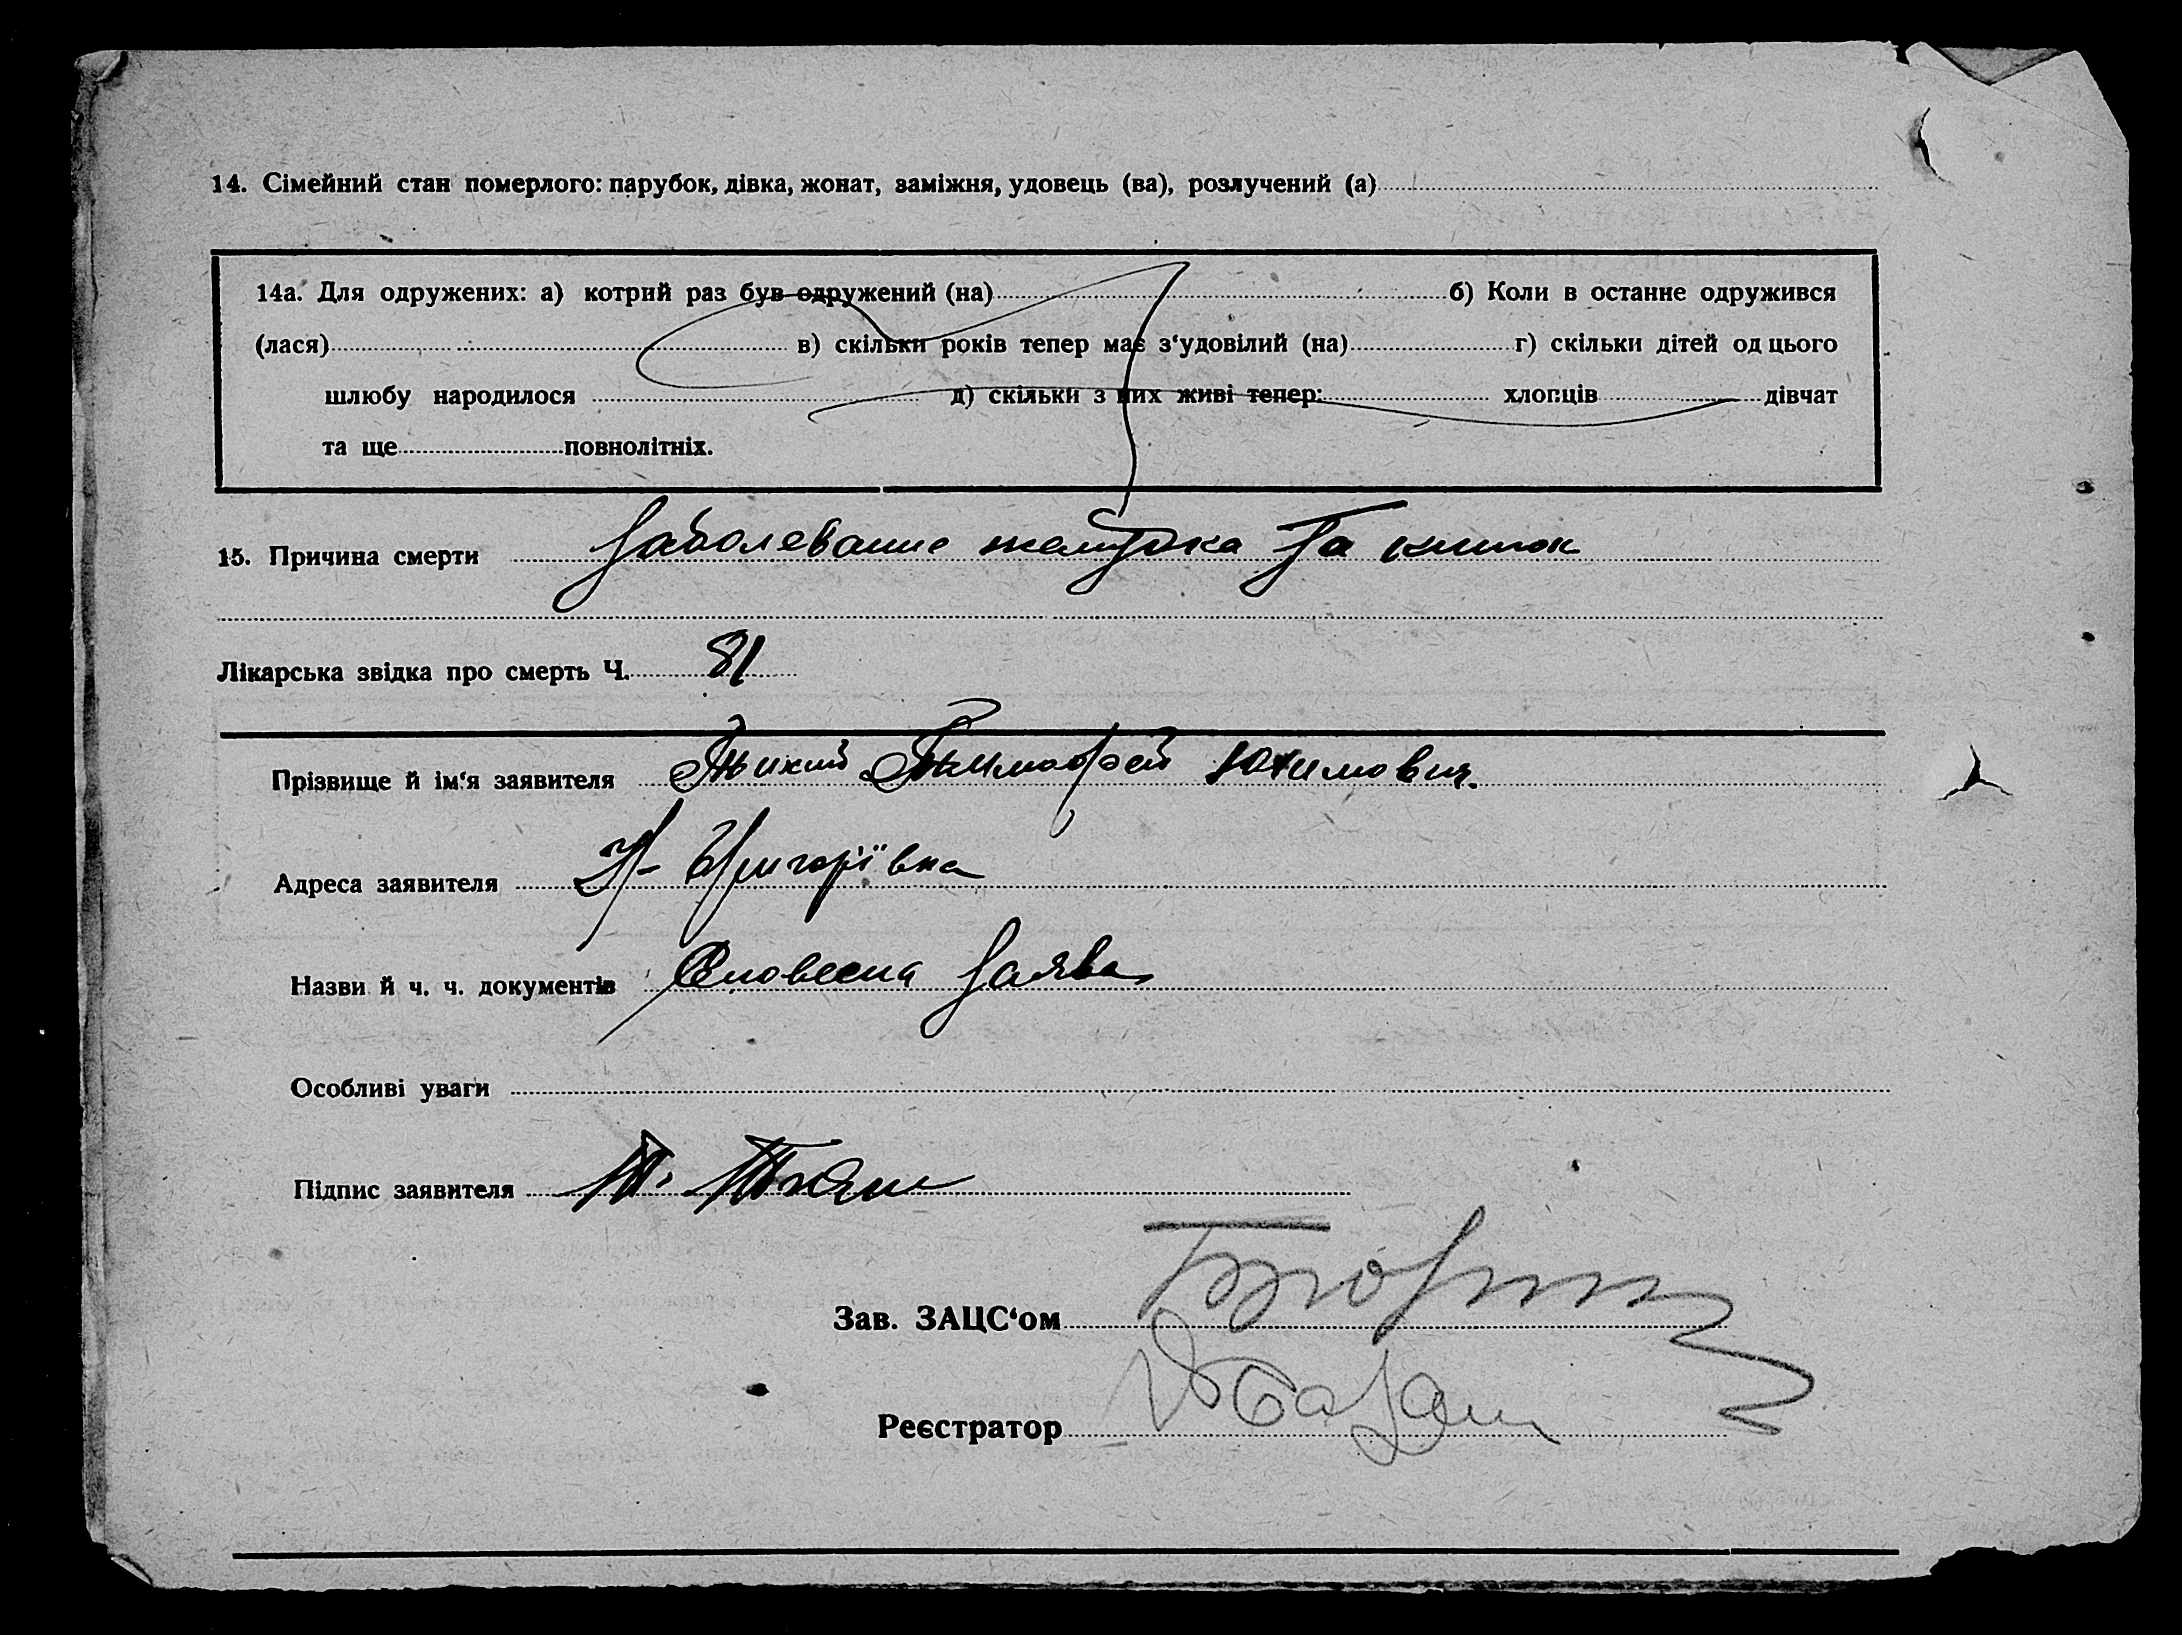 14. Сімейний стан померлого: парубок, дівка, жонат, заміжня, удовець (ва), розлучений (а)
14а. Для одружених: а) котрий раз був одружений (на) б) Коли в останнє одружився
(лася) в) скільки років тепер має з‘удовілий (на) г) скільки дітей од цього
шлюбу народилося д) скільки з них живі тепер: хлопців дівчат
та ще повнолітніх.
15. Причина смерти Заболевание желудка та кишок
Лікарська звідка про смерть Ч. 81
Прізвище й ім‘я заявителя Тимофей Юхимович.
Адреса заявителя Григорівка
Назви й ч. ч. документів Словесна заява
Особливі уваги
Підпис заявителя Т.
Зав. ЗАЦС‘ом
Реєстратор